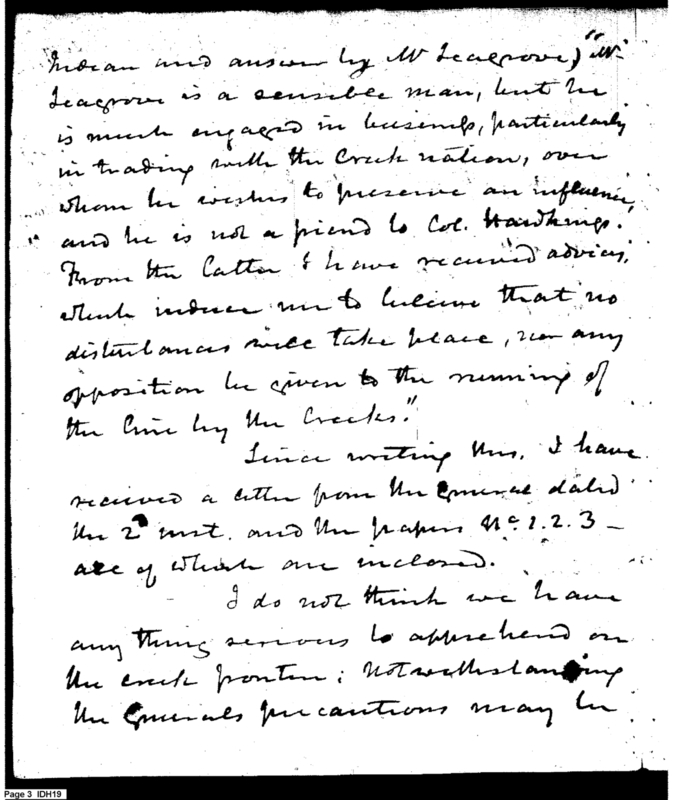 Indian and answer by Mr Seagrove,) "Mr
Seagrove is a sensible man, but he
is much engaged in business, particularly
in trading with the Creek nation, over
whom he wishes to preserve an influence,
" and he is not a friend to Col. Hawkings.
From the latter I have received advices,
which induce me to believe that no
disturbances will take place, nor any
opposition be given to the running of
the line by the Creeks."
Since writing this, I have
received a letter from the General dated
the 2d inst. and the papers No. 1. 2. 3 -
all of which are inclosed.
I do not think we have
any thing serious to apprehend on
the creek frontier; Notwithstanding
the Generals precautions may be
Page 3 IDH19